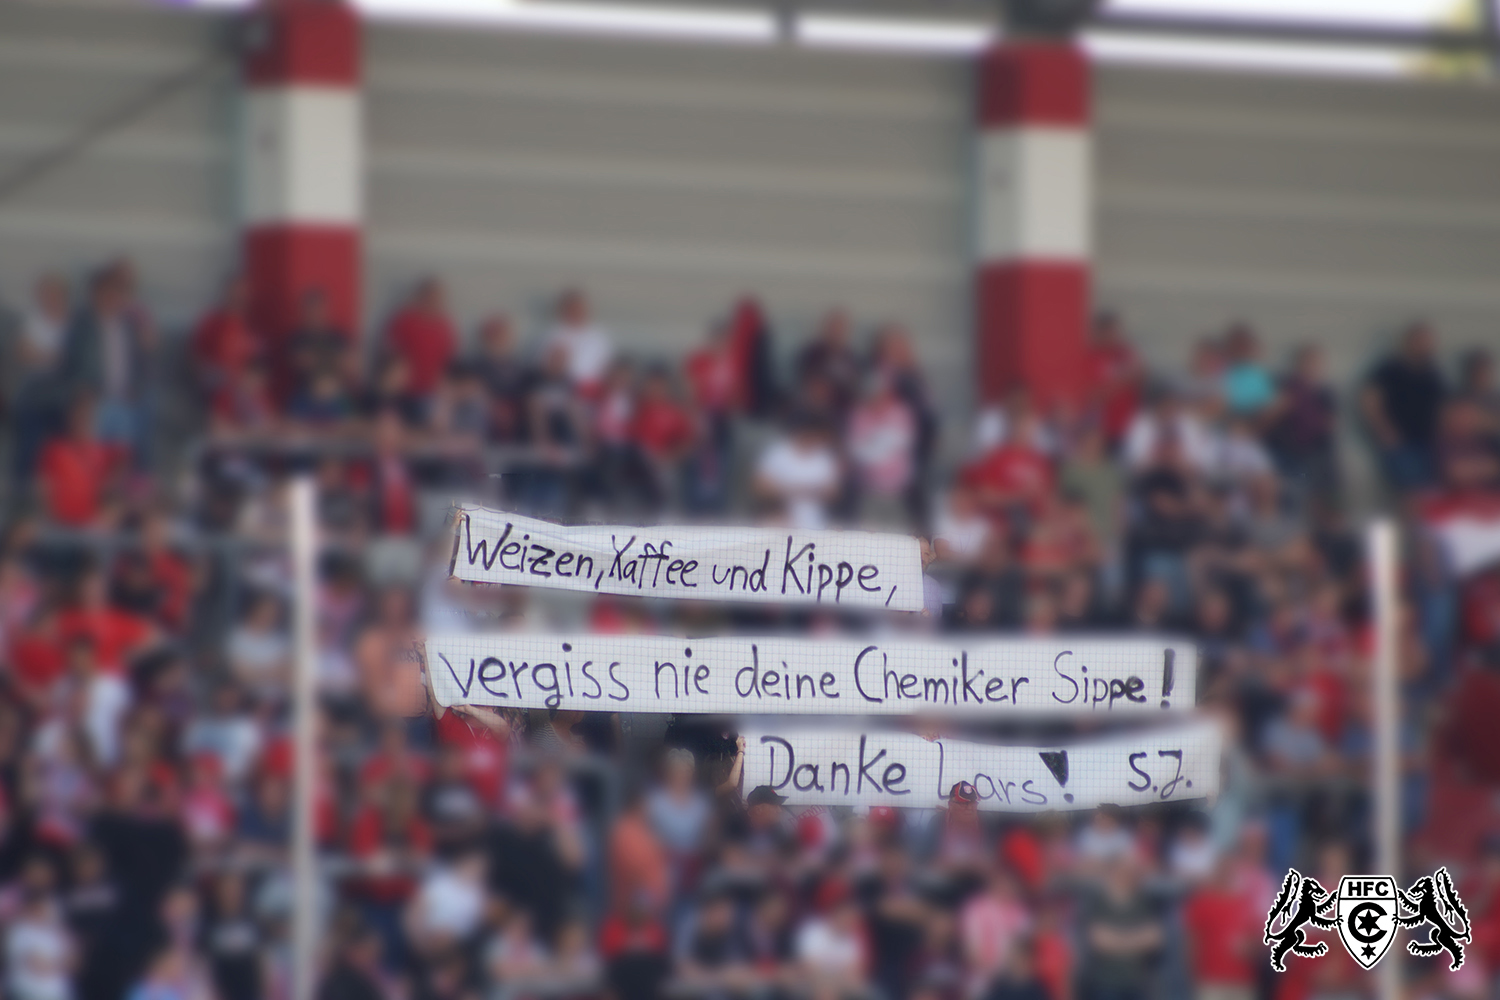 Weizen, Kaffee und Kippe,
vergiss nie deine Chemiker Sippe!
Danke Lars! S.J.
HFC